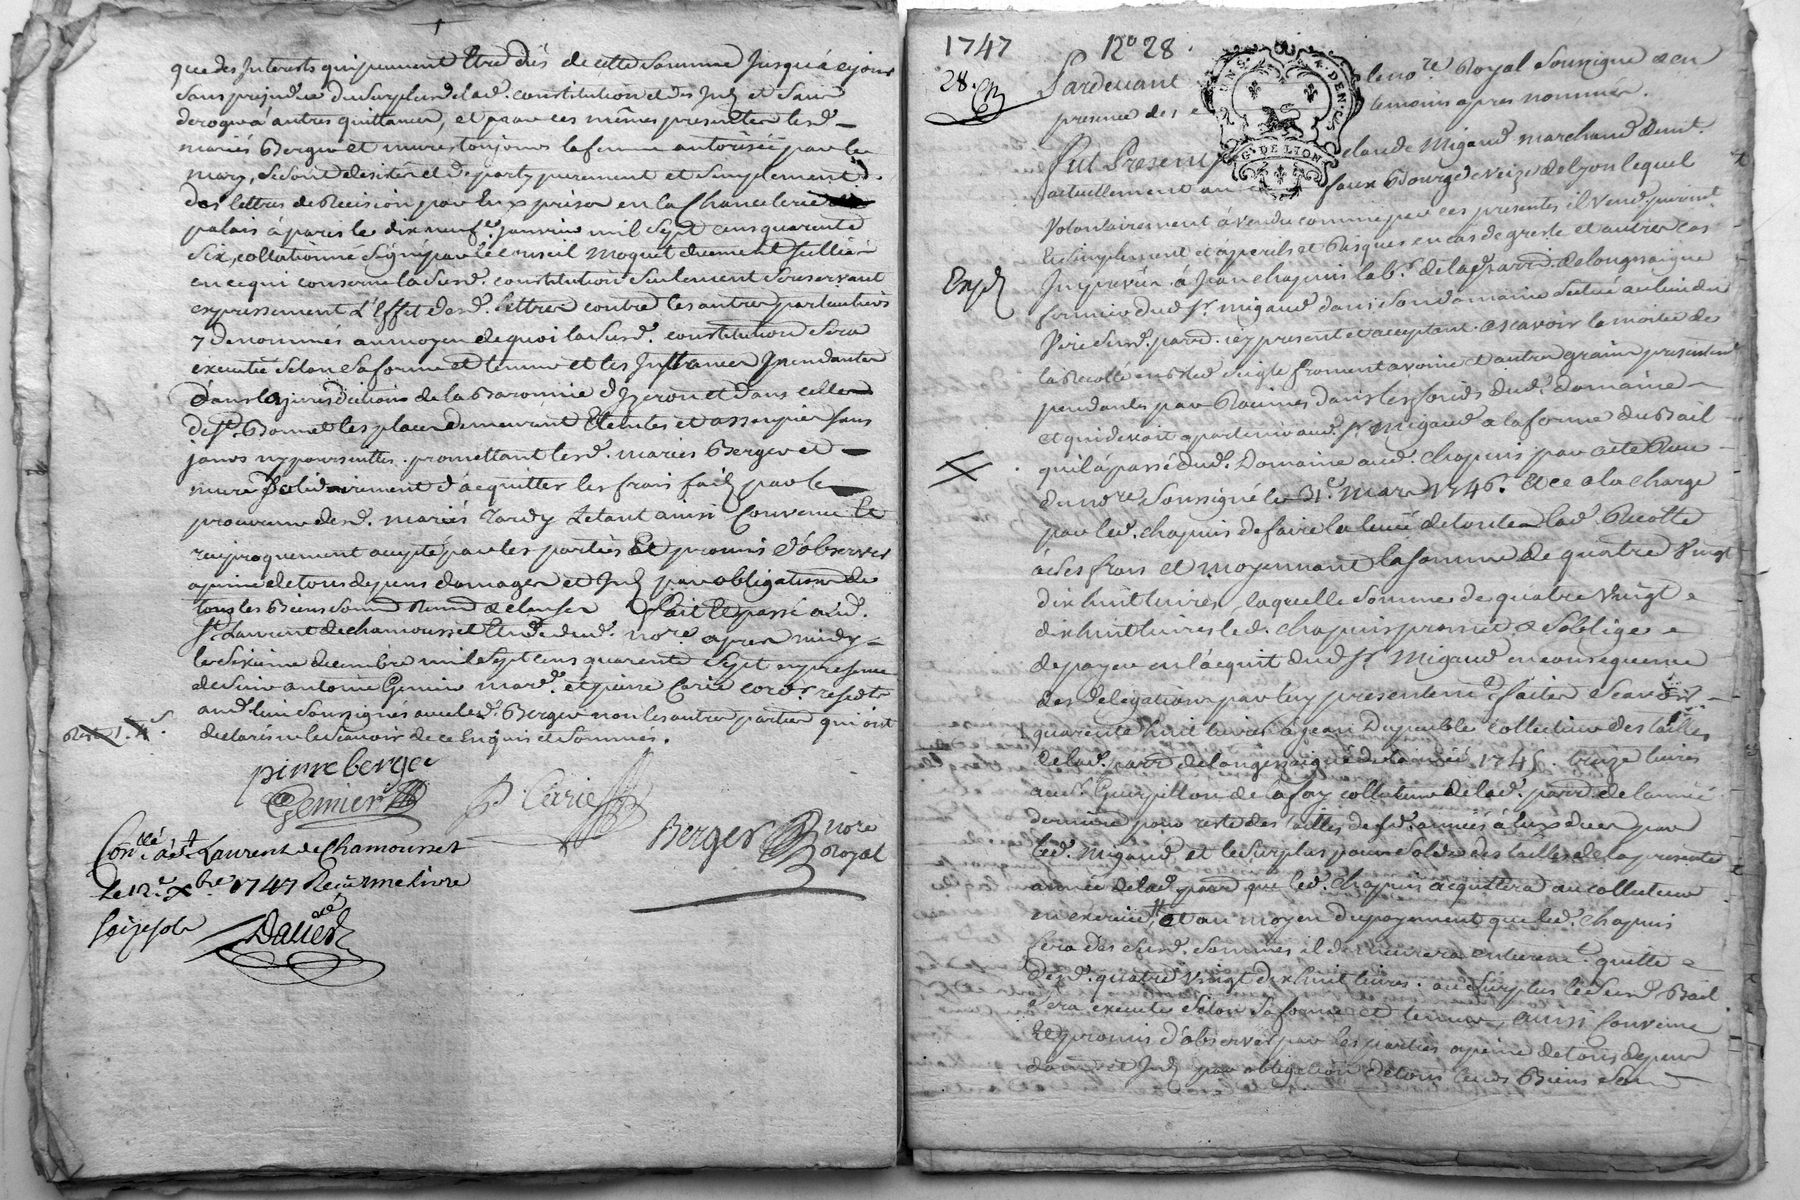 que des Interests qui peuvent Etre dûs de cette somme Jusqu'à ce jour
sans prejudice du surplus de lad. constitution et des Int. et sans
deroger à autres quittances, et par ces mêmes presentes lesd.
mariés Berger et mure toujours la femme autorisée par le
mary, se sont desistés et departy purement et simplement
des lettres de Recision par Eux prises en la Chancelerie
palais à paris le dix neuf janvier mil sept cens quarente
six, collationné signé par le conseil Moquet duement scellée
en ce qui concerne la susd. constitution seulement se reservant
expressement L'Effet desd. lettres contre les autres particuliers
y denommés au moyen de quoi la susd. constitution sera
executée selon sa forme et teneur et les Instances Ipendantes
dans la jurisdiction de la Baronnie d'Izeron et dans celle
de St. Bonnet les place demeurant Eteintes et assoupies sans
jamais y poursuittes. promettant lesd. mariés Berger et
mure solidairement d'acquitter les frais faits par le
procureur desd. mariés Tardy Etant ainsi Convenu Et
reciproquement accepté par les parties Et promis d'observer
a peine de tous depens domages et Int. par obligation de
tous les Biens soum. Renon. & clauses fait Et passé aud.
St. Laurent de chamousset Etude dud. nore. apres midy
le sixieme decembre mil sept cens quarente sept en presence
de sieur antoine Gemier mard. et pierre Carie cord. resid.ts
aud. lieu soussignés avec led. Berger non les autres parties qui ont
declaré ne le scavoir de ce Enquis et sommés.
pierre berger
Gemier
P. Carie
Berger nore Royal
Conllé. à St. Laurent de Chamousset
Le 12e. Xbre 1747 Reçu une livre
Davier
1747 No 28.
28.
Pardevant le nore. Royal soussigné & en
presence des temoins apres nommés.
Fut Present claude Migaud marchand demt.
actuellement au faux Bourg de Veize de Lyon lequel
Volontairement à vendu comme par ces presentes il Vend puremt.
Et simplement et à perils et Risques en cas de gresle et autres cas
Expd.
Imprévûs à Jean chapuis lab.r de la parr. de longessaigne
fermier dud. Sr. migaud dans son domaine scitué au lieu du
Pire susd. parr. icy present et acceptant. ascavoir la moitié de
la Recolte en Bled seigle froment avoine et autres grains presentemt.
pendants par Racines dans les fonds dud. Domaine
et qui devoit apartenir aud. Sr Migaud a la forme du Bail
qu'il à passé dud. Domaine aud. Chapuis par acte Reçu
du nore. soussigné le 31e. Mars 1746. Et ce a la charge
par led. chapuis de faire la levée de toute lad. Recolte
à ses frais et moyennant la somme de quatre Vingt
dix huit livres, laquelle somme de quatre Vingt
dix huit livres led. chapuis promet & s'oblige
de payer en l'acquit dud. Sr Migaud en consequence
des delegations par luy presentement faites scavoir
quarente huit livres à jean Dupeuble collecteur des tailles
de lad. parr. de longessaigne de l'année 174 treize livres
aud. Guerpillon de la fay collecteur de lad. parr. de l'année
derniere pour reste des tailles desd. années à Eux dues par
led. Migaud, et le surplus pour solde des tailles de la presente
année de lad. parr. que led. chapuis acquittera au collecteur
en exercice, Et au moyen du payement que led. chapuis
fera des susd. sommes il demeurera entierem.t quitte
desd. quatre Vingt dix huit livres. au surplus le susd. Bail
sera executé selon sa forme et teneur, ainsi Convenu
Et promis d'observer par les parties a peine de tous depens
dom. et Int. par obligation de tous leurs Biens soum.